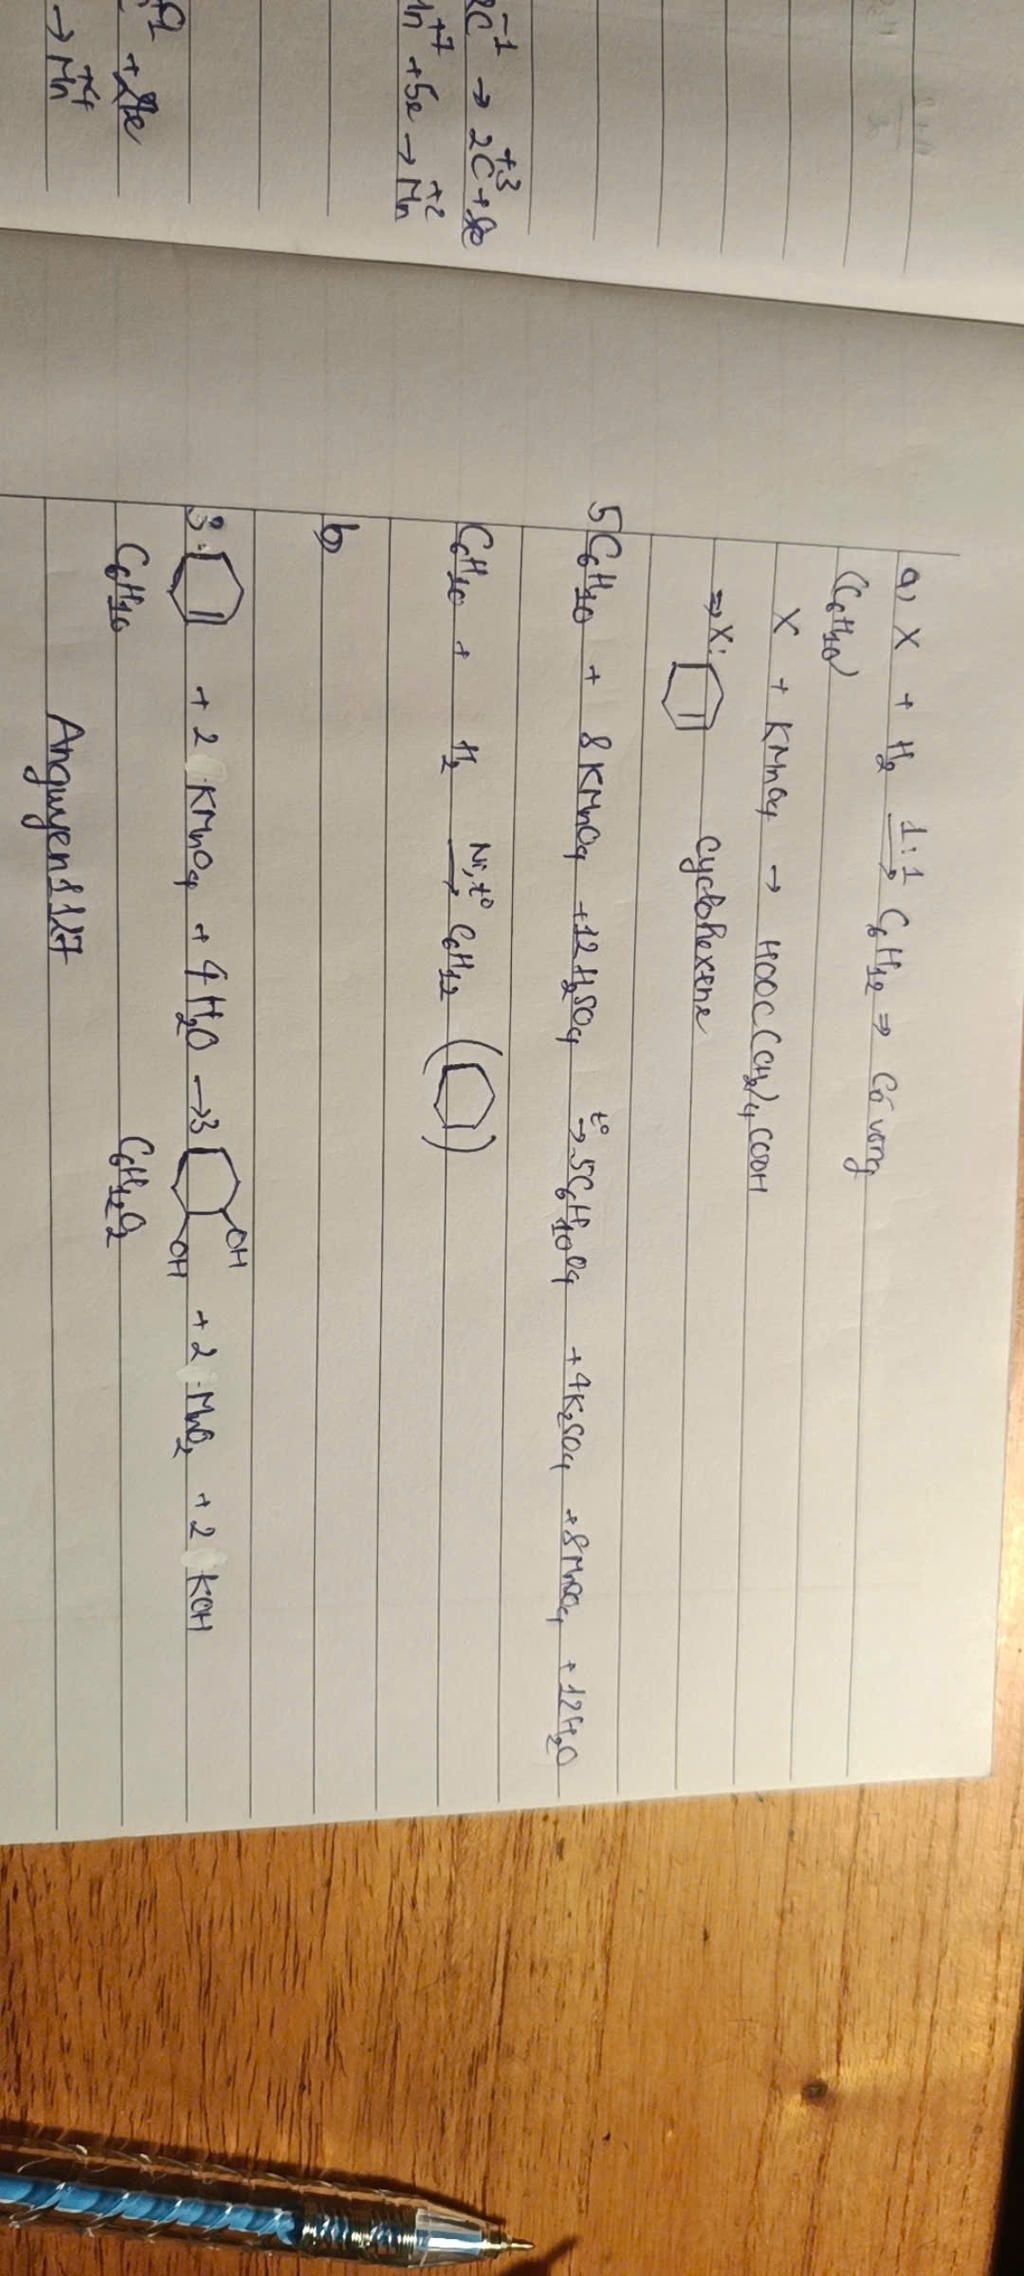 2C⁻¹ → 2C⁺³ + 8e
Mn⁺⁷ + 5e → Mn⁺²
→ Mn⁺⁴
a, X + H₂ 1:1→ C₆H₁₂ ⇒ Có vòng
(C₆H₁₀)
X + KMnO₄ → HOOC(CH₂)₄COOH
⇒ X: cyclohexene
5C₆H₁₀ + 8KMnO₄ + 12H₂SO₄ t°→ 5C₆H₁₀O₄ + 4K₂SO₄ + 8MnSO₄ + 12H₂O
C₆H₁₀ + H₂ Ni,t°→ C₆H₁₂ ( )
b,
3 + 2 KMnO₄ + 4H₂O → 3 OH OH + 2 MnO₂ + 2 KOH
C₆H₁₀ C₆H₁₂O₂
Anguyen1127